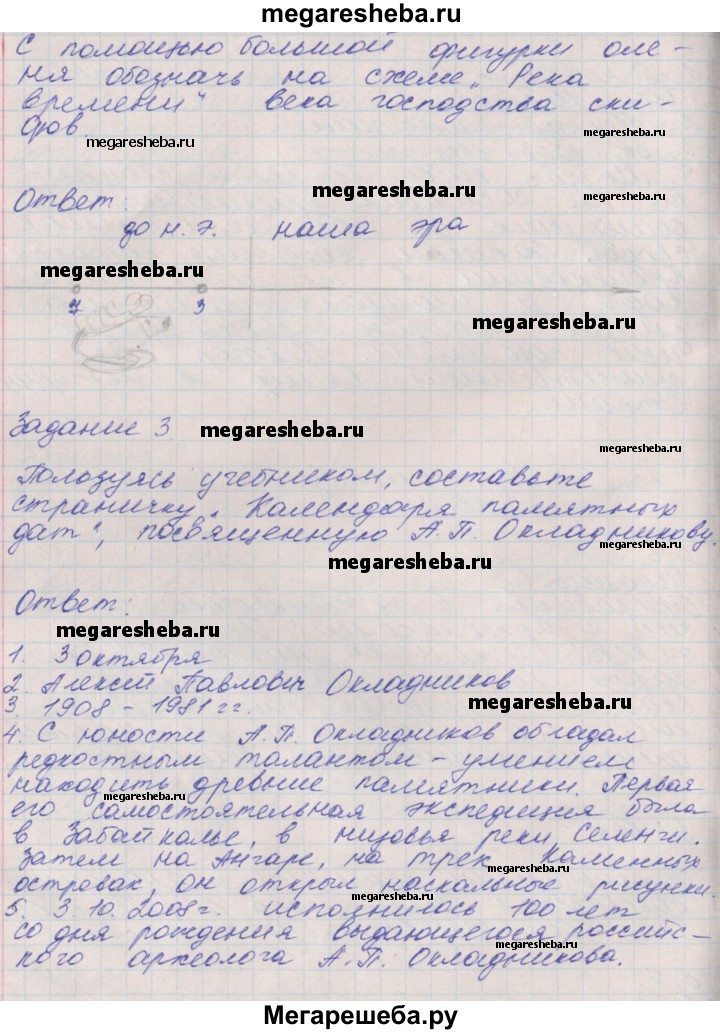 megaresheba.ru
С помощью большой фигурки оле-
ня обозначь на схеме „Река
времени" века господства ски-
фов.
megaresheba.ru
megaresheba.ru
megaresheba.ru
Ответ:
до н. э. наша эра
megaresheba.ru
7 3
megaresheba.ru
Задание 3
megaresheba.ru
megaresheba.ru
Пользуясь учебником, составьте
страничку „Календаря памятных
дат", посвященную А. П. Окладникову.
megaresheba.ru
megaresheba.ru
Ответ:
megaresheba.ru
1. 3 октября
2. Алексей Павлович Окладников
3. 1908 - 1981 гг.
megaresheba.ru
4. С юности А. П. Окладников обладал
редкостным талантом - умением
находить древние памятники. Первая
megaresheba.ru
его самостоятельная экспедиция была
в Забайкалье, в низовья реки Селенги.
megaresheba.ru
Затем на Ангаре, на трех Каменных
островах, он открыл наскальные рисунки.
megaresheba.ru
5. 3. 10. 2008 г. исполнилось 100 лет
со дня рождения выдающегося россий-
megaresheba.ru
ского археолога А. П. Окладникова.
megaresheba.ru
Мегарешеба.ру